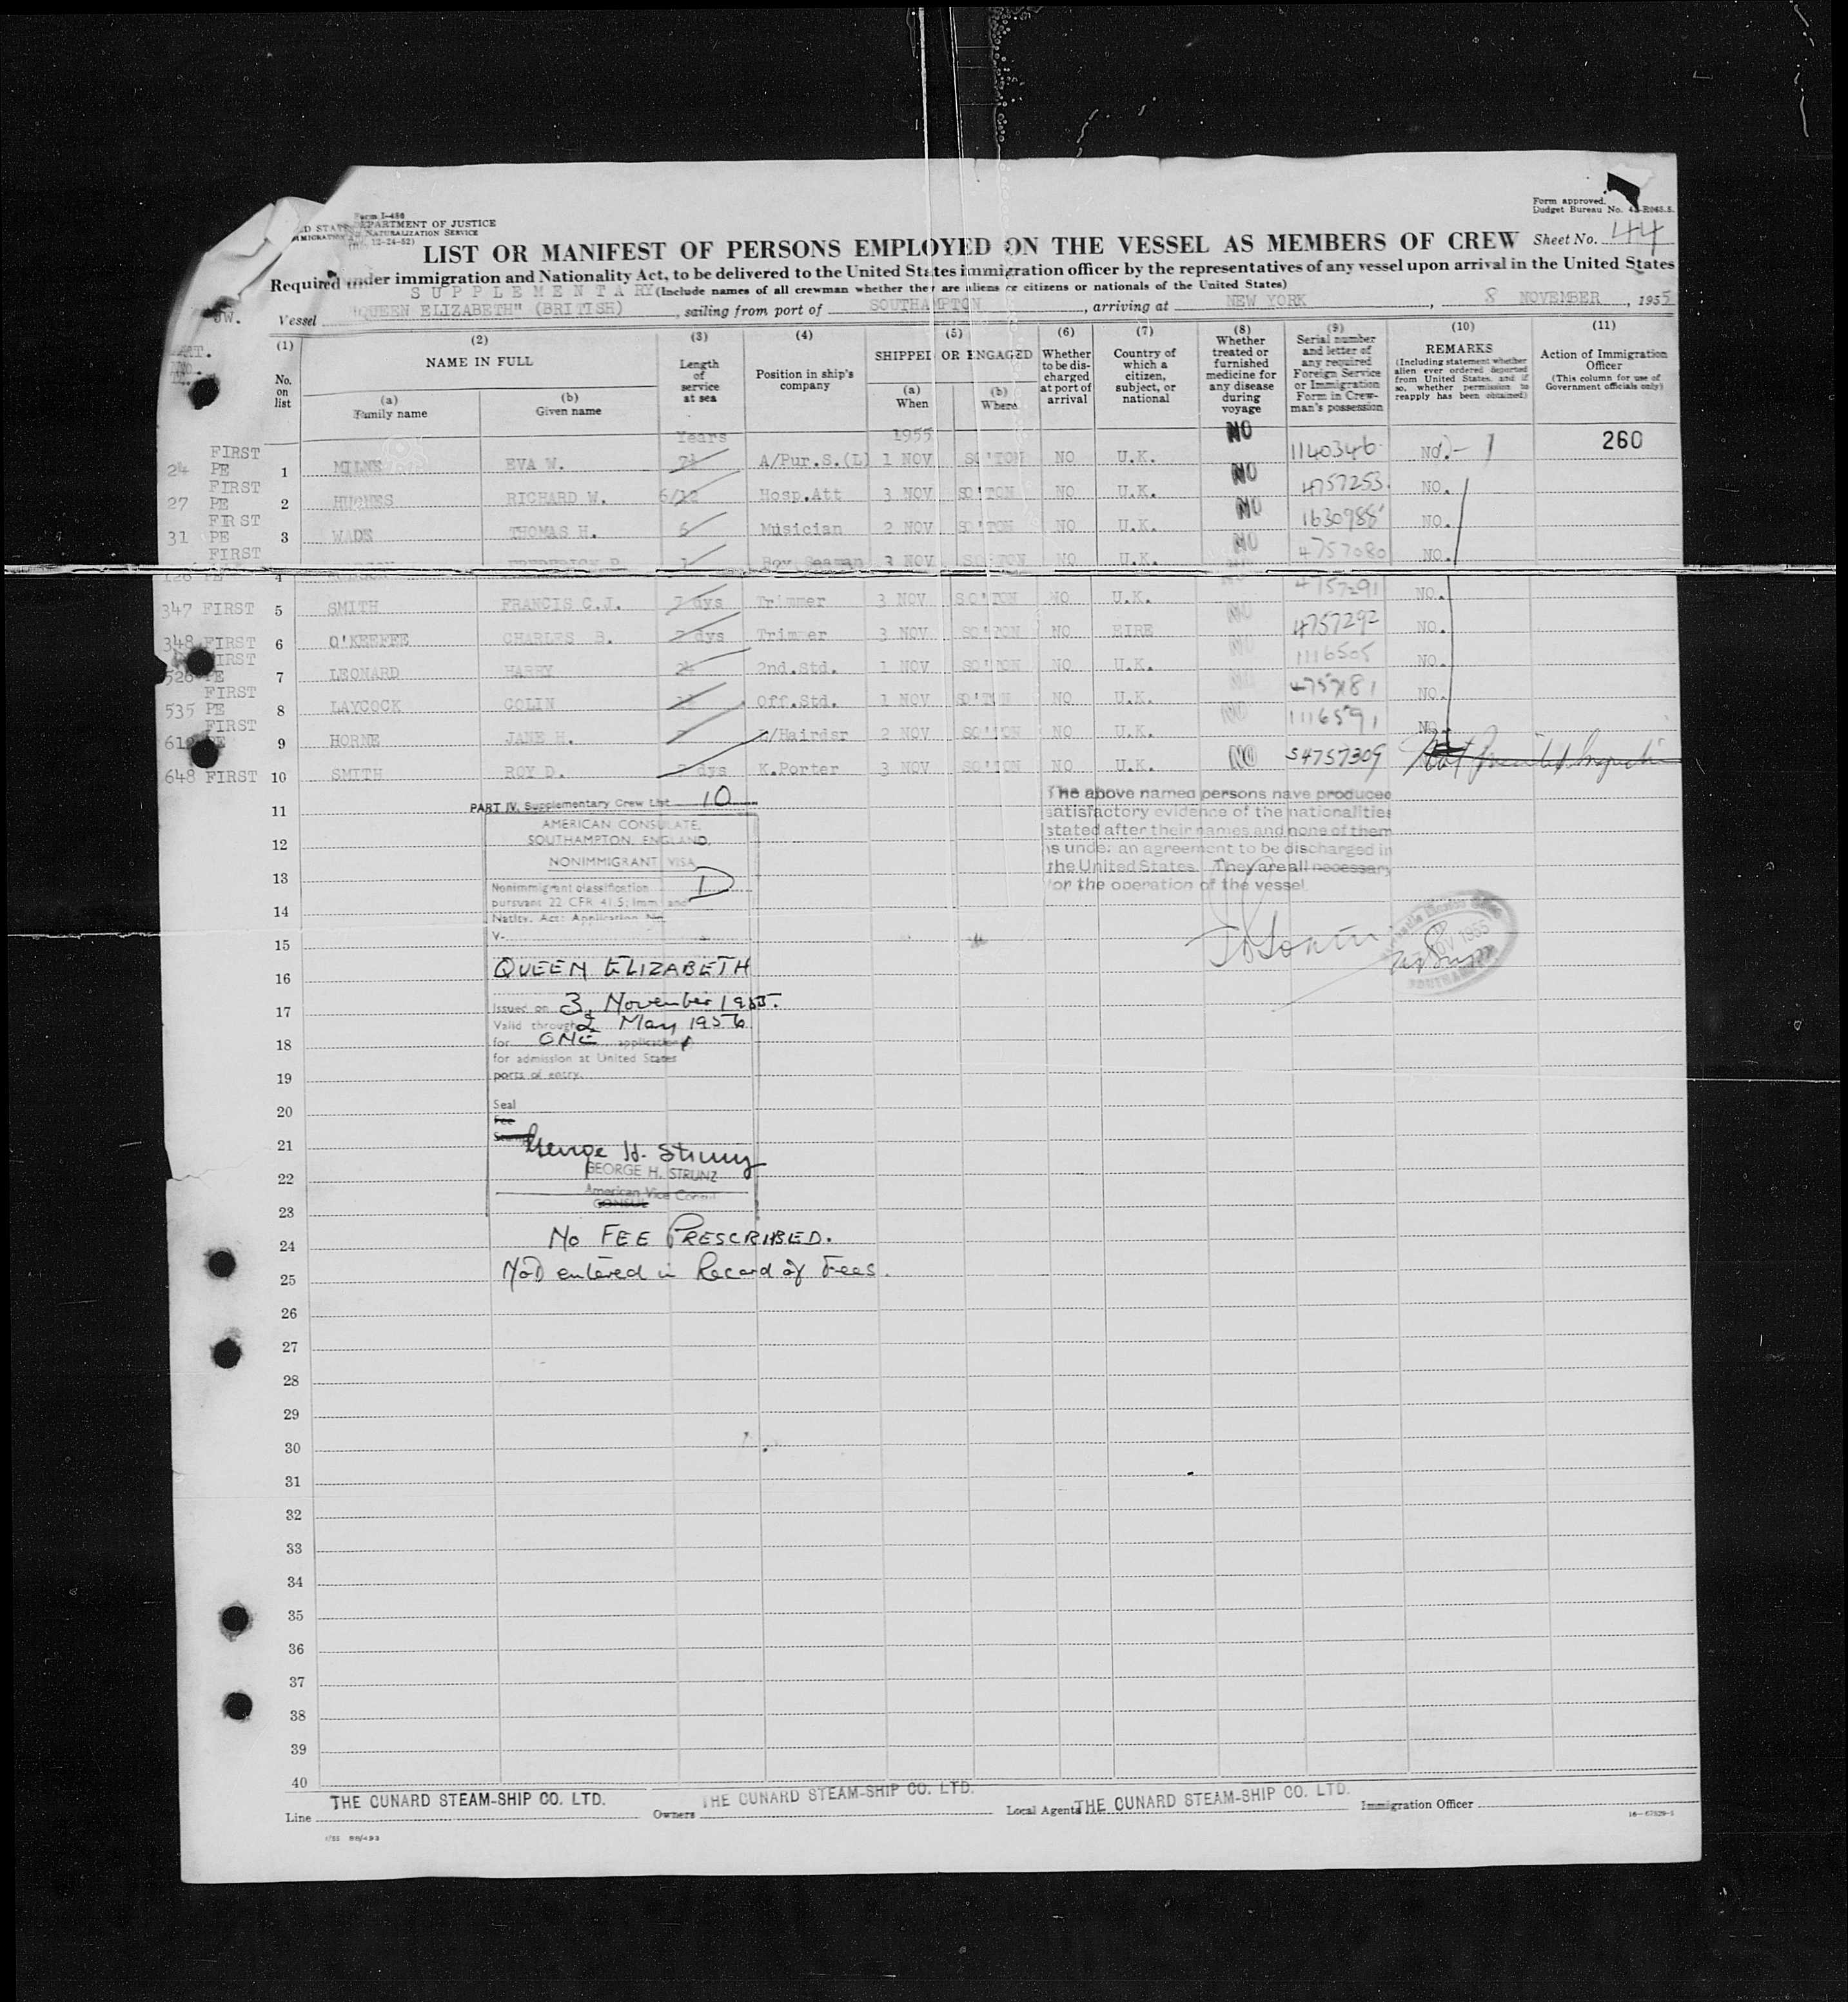 Form I-486
UNITED STATES DEPARTMENT OF JUSTICE
IMMIGRATION NATURALIZATION SERVICE
12-24-52)
Form approved.
Budget Bureau No. 43-R065.5.
LIST OR MANIFEST OF PERSONS EMPLOYED ON THE VESSEL AS MEMBERS OF CREW Sheet No. 44
Required under immigration and Nationality Act, to be delivered to the United States immigration officer by the representatives of any vessel upon arrival in the United States
SUPPLEMENTARY (Include names of all crewman whether they are aliens or citizens or nationals of the United States)
Vessel "QUEEN ELIZABETH" (BRITISH), sailing from port of SOUTHAMPTON, arriving at NEW YORK, 8 NOVEMBER, 1955
(1) No. on list
(2) NAME IN FULL
(a) Family name
(b) Given name
(3) Length of service at sea
(4) Position in ship's company
(5) SHIPPED OR ENGAGED
(a) When
(b) Where
(6) Whether to be discharged at port of arrival
(7) Country of which a citizen, subject, or national
(8) Whether treated or furnished medicine for any disease during voyage
(9) Serial number and letter of any required Foreign Service or Immigration Form in Crewman's possession
(10) REMARKS (Including statement whether alien ever ordered deported from United States, and if so, whether permission to reapply has been obtained)
(11) Action of Immigration Officer (This column for use of Government officials only)
Years 1955
24 FIRST PE 1 MILNE EVA W. A/Pur.S.(L) 1 NOV SO'TON NO U.K. NO 1140346 NO. 260
27 FIRST PE 2 HUGHES RICHARD W. 6/12 Hosp.Att 3 NOV SO'TON NO U.K. NO 4757253 NO.
31 FIRST PE 3 WADE THOMAS H. 6 Musician 2 NOV SO'TON NO U.K. NO 1630988 NO.
FIRST PE 4 FREDERICK Boy Seaman 3 NOV SO'TON NO U.K. NO 4757080 NO.
347 FIRST 5 SMITH FRANCIS C.J. 7 dys Trimmer 3 NOV SO'TON NO U.K. NO 4757291 NO.
348 FIRST 6 O'KEEFFE CHARLES B. 7 dys Trimmer 3 NOV SO'TON NO EIRE NO 4757292 NO.
526 FIRST PE 7 LEONARD HARRY 2nd.Std. 1 NOV SO'TON NO U.K. NO 1116505 NO.
535 FIRST PE 8 LAYCOCK COLIN Off.Std. 1 NOV SO'TON NO U.K. NO NO.
FIRST PE 9 HORNE JANE H. L/Hairdsr 2 NOV SO'TON NO U.K. NO 1116591 NO.
648 FIRST 10 SMITH ROY D. 7 dys K.Porter 3 NOV SO'TON NO U.K. NO 54757309
11
12
13
14
15
16
17
18
19
20
21
22
23
24
25
26
27
28
29
30
31
32
33
34
35
36
37
38
39
40
PART IV. Supplementary Crew List 10
AMERICAN CONSULATE,
SOUTHAMPTON, ENGLAND.
NONIMMIGRANT VISA
Nonimmigrant classification D
pursuant 22 CFR 41.5; Imm. and
Natlty. Act: Application No.
V-
QUEEN ELIZABETH
Issued on 3 November 1955.
Valid through 2 May 1956
for ONE application
for admission at United States
ports of entry.
Seal
Fee
Stamp
George H. Strunz
GEORGE H. STRUNZ
American Vice Consul
CONSUL
No FEE PRESCRIBED.
Not entered in Record of Fees.
The above named persons have produced
satisfactory evidence of the nationalities
stated after their names and none of them
is under an agreement to be discharged in
the United States They are all necessary
for the operation of the vessel.
NOV 1955
Line THE CUNARD STEAM-SHIP CO. LTD. Owners THE CUNARD STEAM-SHIP CO. LTD. Local Agents THE CUNARD STEAM-SHIP CO. LTD. Immigration Officer
16-67529-1